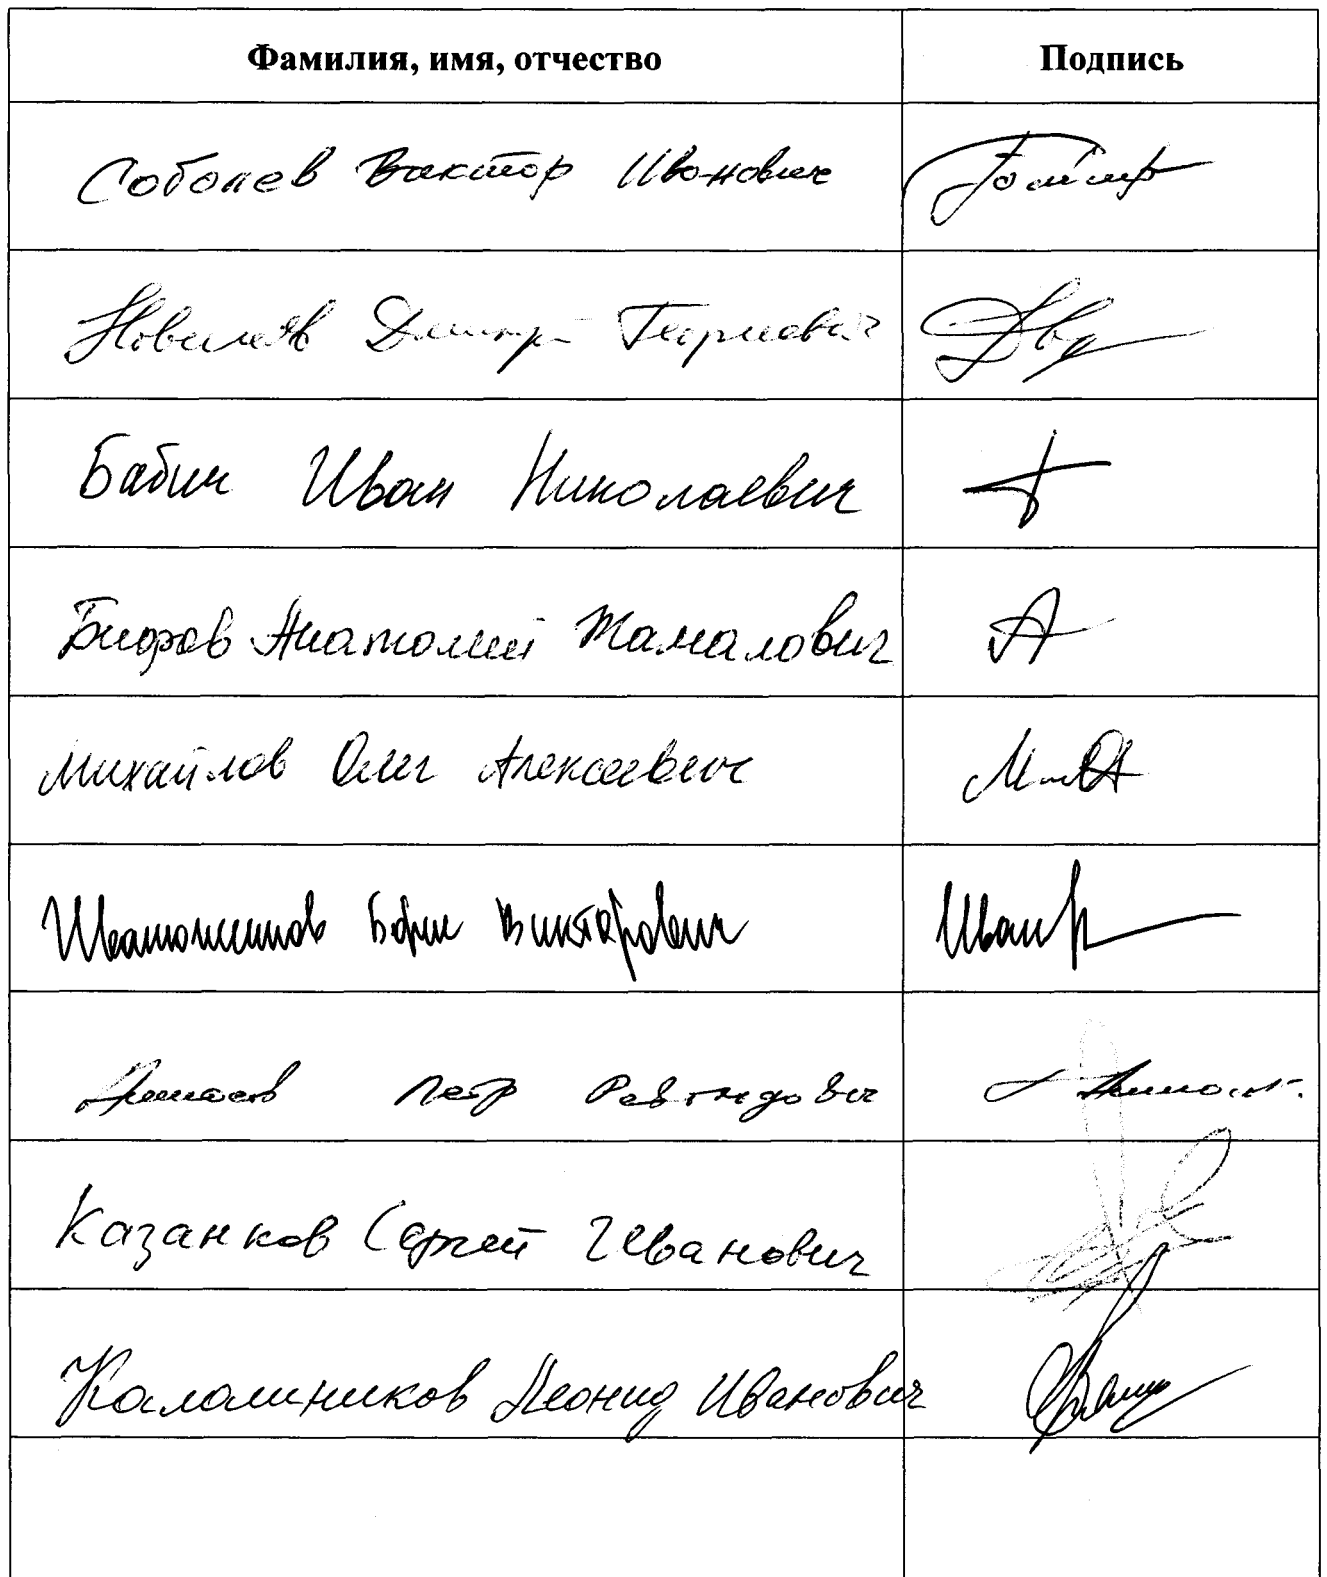 Фамилия, имя, отчество Подпись
Соболев Виктор Иванович
Дмитрий Георгиевич
Бабич Иван Николаевич
Бифов Анатолий Жамалович
Михайлов Олег Алексеевич
Иванюженков Борис Викторович
Аммосов Петр Револьдович
Казанков Сергей Иванович
Калашников Леонид Иванович